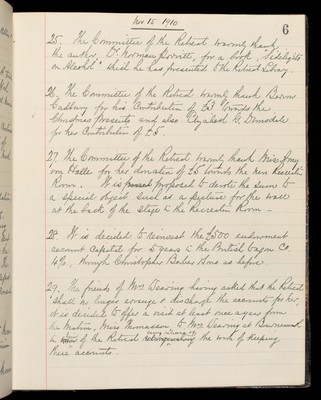 Nov 15 1910
6
25. The Committee of the Retreat warmly thank
the author, Dr. Norman Kerr, for a book "Sidelights
on Alcohol" which he has presented to the Retreat Library.
26. The Committee of the Retreat warmly thank
Cadbury for his Contribution of £3 towards the
Christmas presents and also Elizabeth G. Dimsdale
for her Contribution of £5.
27. The Committee of the Retreat warmly thank Miss Amy
for her donation of £5 towards the new Recreation
Room. It is proposed to devote the sum to
a special object such as a picture for the wall
at the back of the stage in the Recreation Room -
28. It is decided to reinvest the £500 endowment
account capital for 5 years in the Bristol Wagon Co
4%, through Christopher & Sons as before
29. The friends of Mrs Dearing having asked that the Retreat
shall no longer arrange & discharge the accounts for her,
it is decided to offer a visit at least once a year from
the Matron, Miss Thomasson to Mrs Dearing at
in view of the Retreat relinquishing the work of keeping
these accounts.